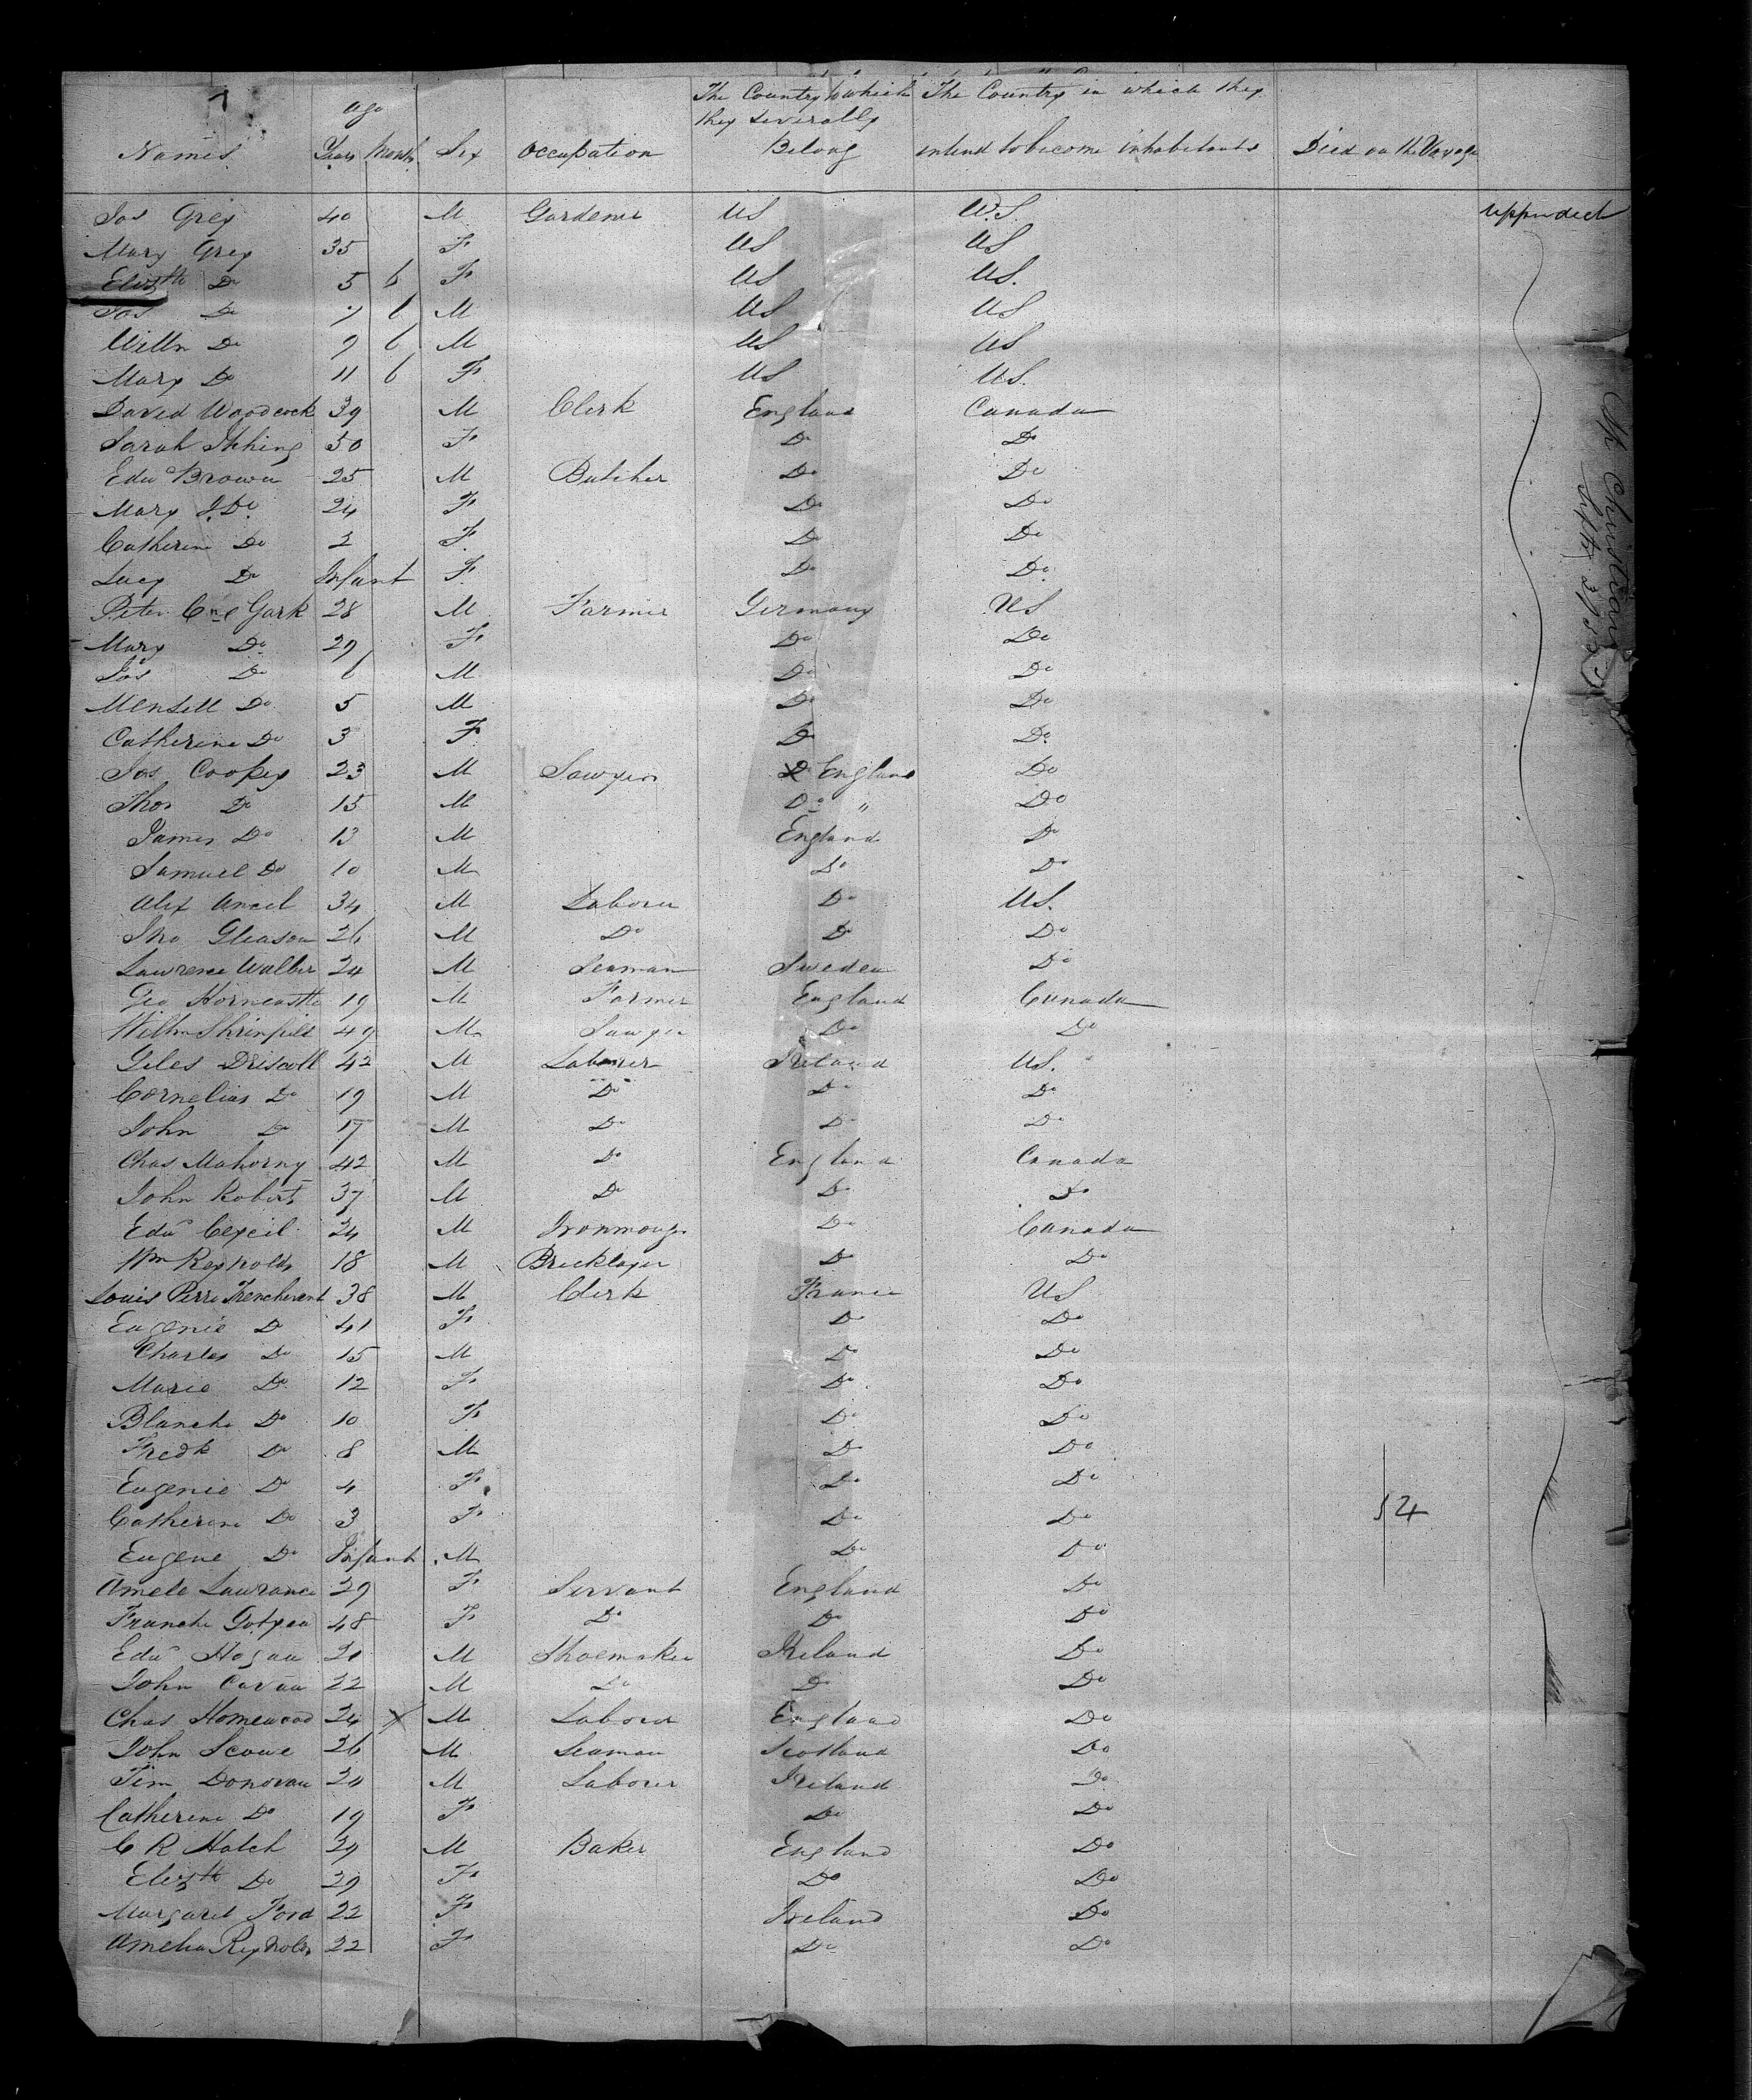 Age The Country to which The Country in which they
they severally
Names Years Month Sex Occupation Belong intend to become inhabitants Died on the Voyage
Jas Grey 40 M Gardener US U.S.
Mary Grey 35 F US US
Elizth Do 5 6 F US US.
Jos Do 7 6 M US US
Willm Do 9 6 M US US
Mary Do 11 6 F US US.
David Woodcock 39 M Clerk England Canada
Sarah 30 F Do Do
Edwd Brown 25 M Butcher Do Do
Mary J. Do. 24 F Do Do
Catherine Do 2 F Do Do
Lucy Do Infant F Do Do
Peter Gark 28 M Farmer Germany US
Mary Do 29 F Do Do
Jos Do 6 M Do Do
Do 5 M Do Do
Catherine Do 3 F Do Do
Jas Cooksy 23 M Sawyer England Do
Thos Do 15 M Do " Do
James Do 13 M England Do
Samuel Do 10 M Do Do
Alex 34 M Laborer Do US.
Jno Gleason 26 M Do Do Do
Lawrence Walber 24 M Seaman Sweden Do
Geo Horncastle 19 M Farmer England Canada
Willm 49 M Sawyer Do Do
Giles Driscoll 42 M Laborer Ireland US.
Cornelius Do 19 M Do Do Do
John Do 17 M Do Do Do
Chas Mahorny 42 M Do England Canada
John Roberts 37 M Do Do Do
Edwd 24 M Ironmonger Do Canada
Wm Reynolds 18 M Bricklayer Do Do
Louis Perre 38 M Clerk France US
Eugenie Do 41 F Do Do
Charles Do 15 M Do Do
Marie Do 12 F Do Do
Blanche Do 10 F Do Do
Fredk Do 8 M Do Do
Eugenie Do 4 F Do Do
Catherine Do 3 F Do Do 54
Eugene Do Infant M Do Do
Amele Lawrance 29 F Servant England Do
48 F Do Do Do
Edwd Hogan 20 M Shoemaker Ireland Do
John Cavan 22 M Do Do Do
Chas Homewood 24 X M Laborer England Do
John Scowe 26 M Seaman Scotland Do
Tim Donovan 20 M Laborer Ireland Do
Catherine Do 19 F Do Do
C R Hatch 29 M Baker England Do
Elizth Do 29 F Do Do
Margaret Ford 22 F Ireland Do
Amelia Reynolds 22 F Do Do